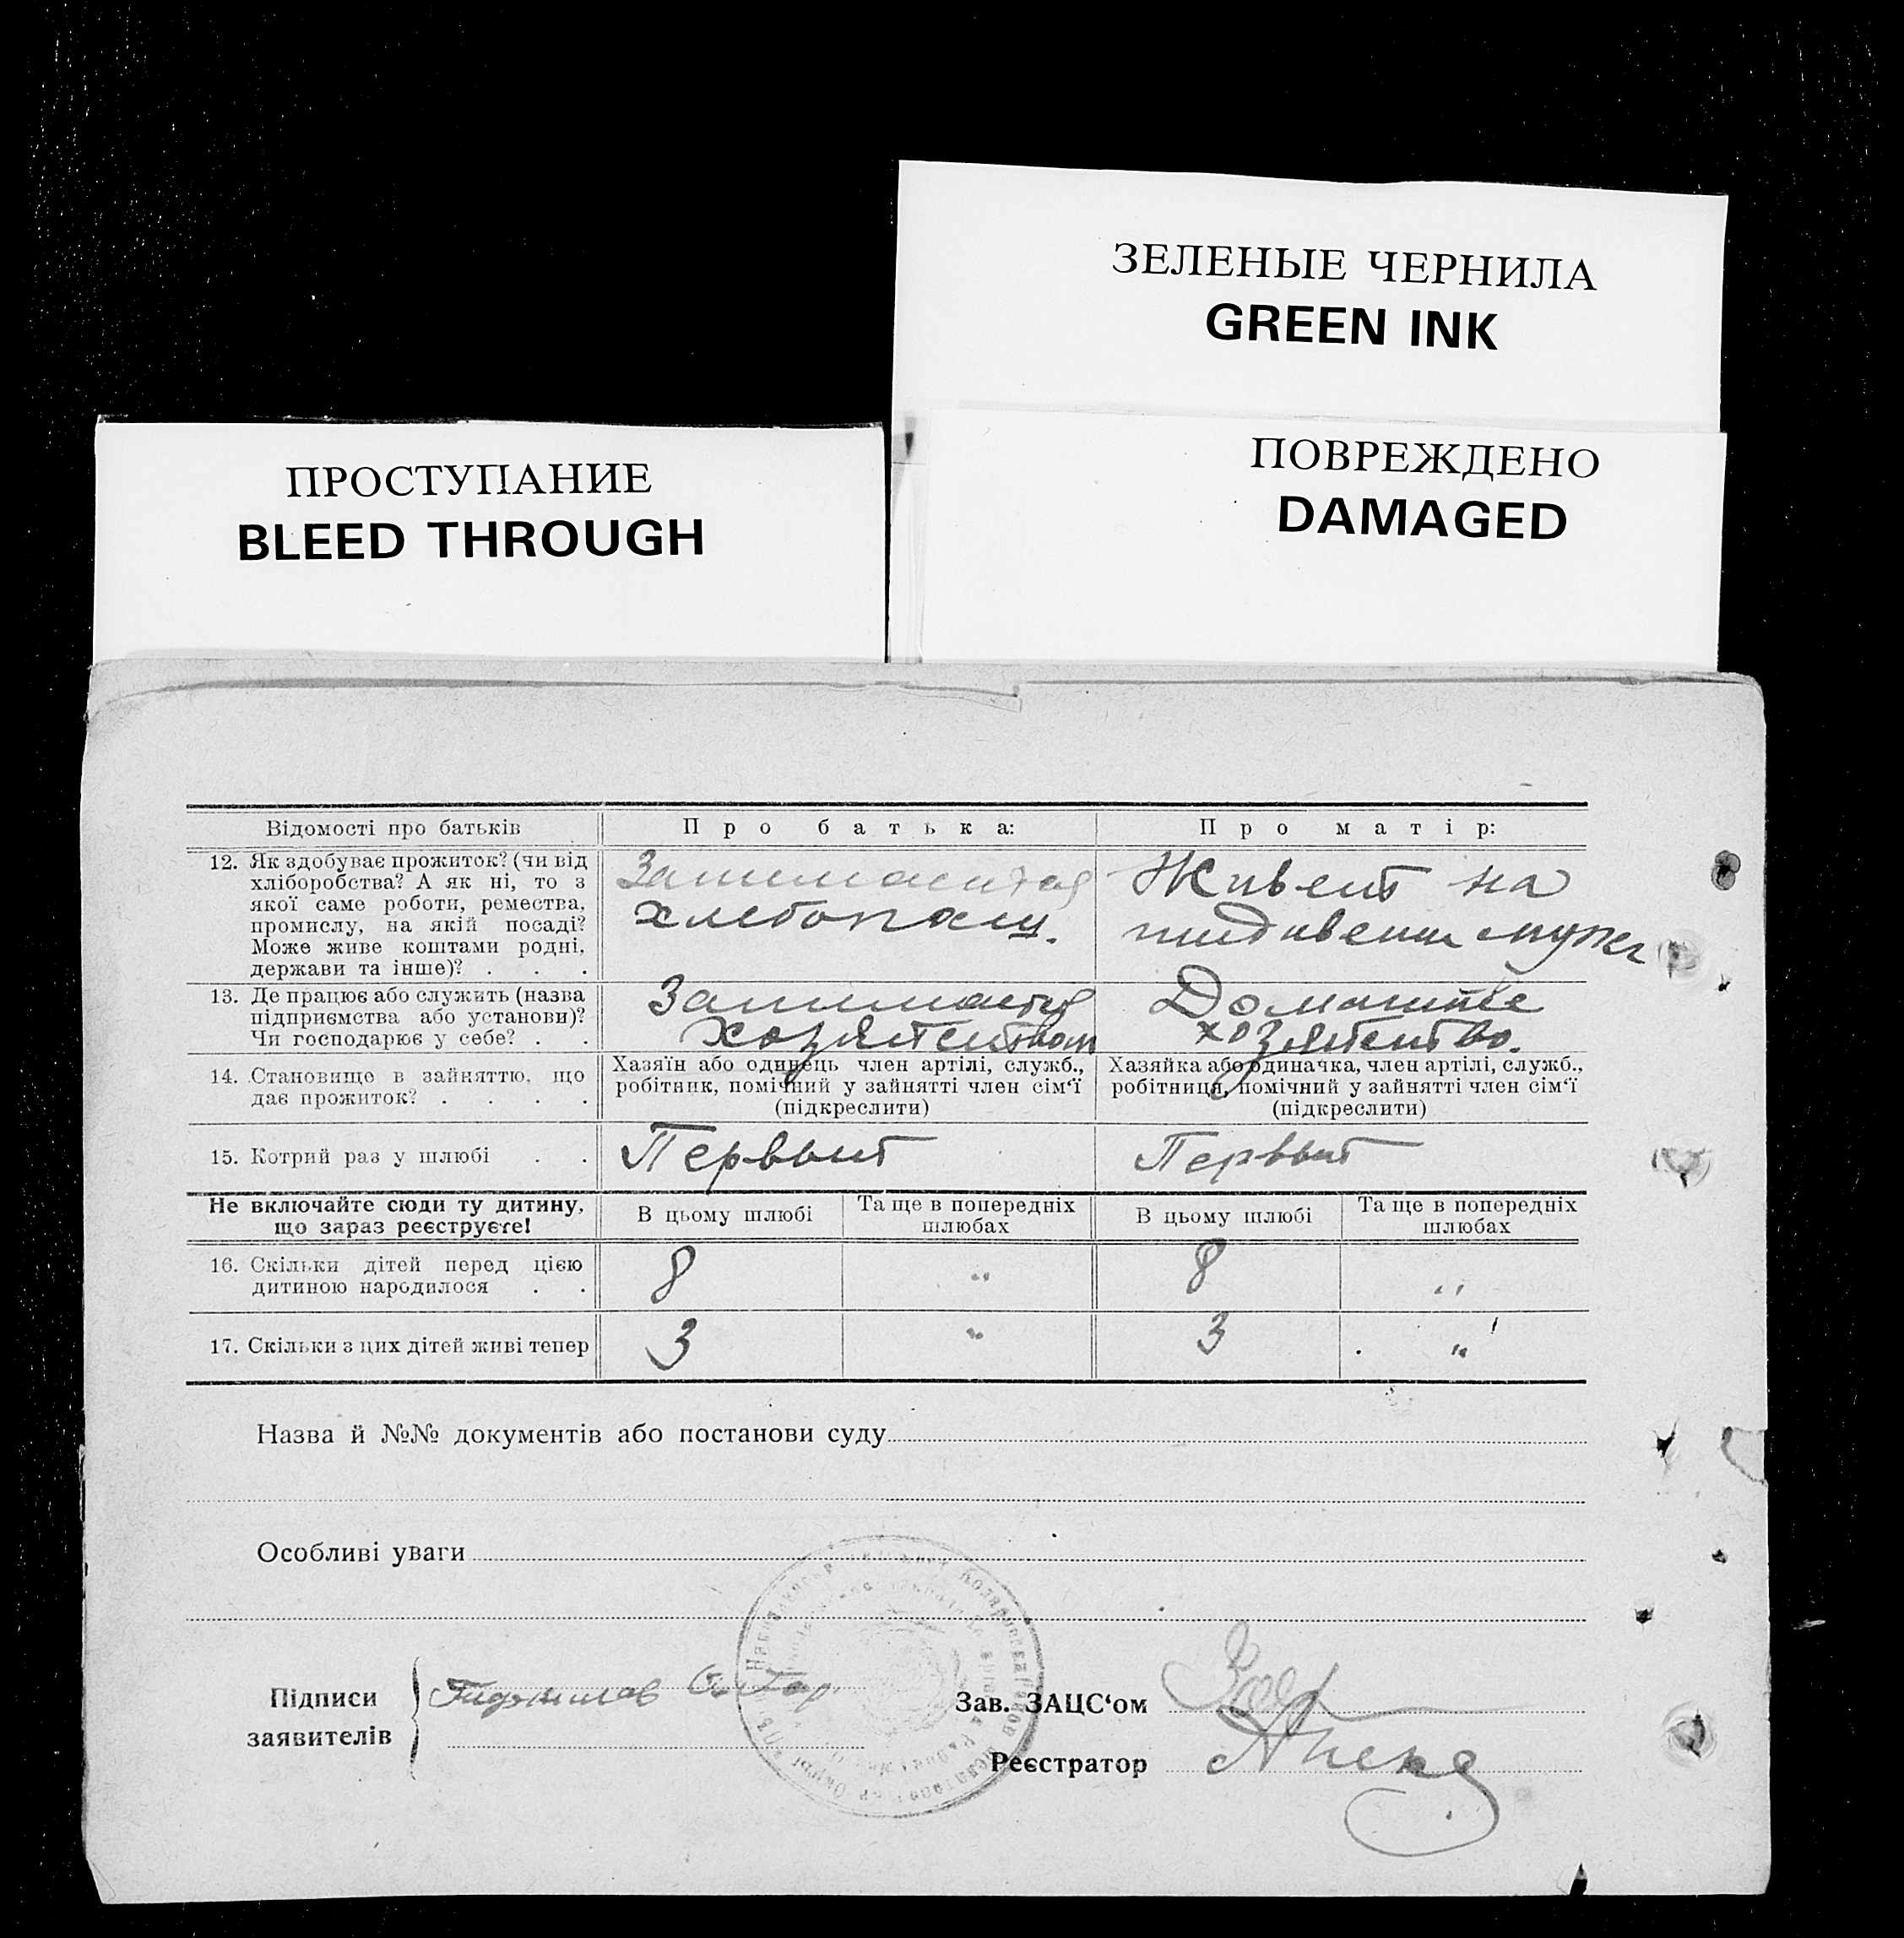 ЗЕЛЕНЫЕ ЧЕРНИЛА
GREEN INK
ПОВРЕЖДЕНО
DAMAGED
ПРОСТУПАНИЕ
BLEED THROUGH
Відомості про батьків
Про батька:
Про матір:
12. Як здобуває прожиток? (чи від
хліборобства? А як ні, то з
якої саме роботи, ремества,
промислу, на якій посаді?
Може живе коштами родні,
держави та інше)? . . .
Живет на
мужа
13. Де працює або служить (назва
підприємства або установи)?
Чи господарює у себе? . .
Домашнее
хозяйство.
14. Становище в зайняттю, що
дає прожиток? . . . .
Хазяїн або одинець член артілі, служб.,
робітник, помічний у зайнятті член сім‘ї
(підкреслити)
Хазяйка або одиначка, член артілі, служб.,
робітниця, помічний у зайнятті член сім‘ї
(підкреслити)
15. Котрий раз у шлюбі . .
Первый
Первый
Не включайте сюди ту дитину,
що зараз реєструєте!
В цьому шлюбі
Та ще в попередніх
шлюбах
В цьому шлюбі
Та ще в попередніх
шлюбах
16. Скільки дітей перед цією
дитиною народилося . .
8
"
8
"
17. Скільки з цих дітей живі тепер
3
"
3
"
Назва й №№ документів або постанови суду
Особливі уваги
Підписи
заявителів
Зав. ЗАЦС‘ом
Реєстратор